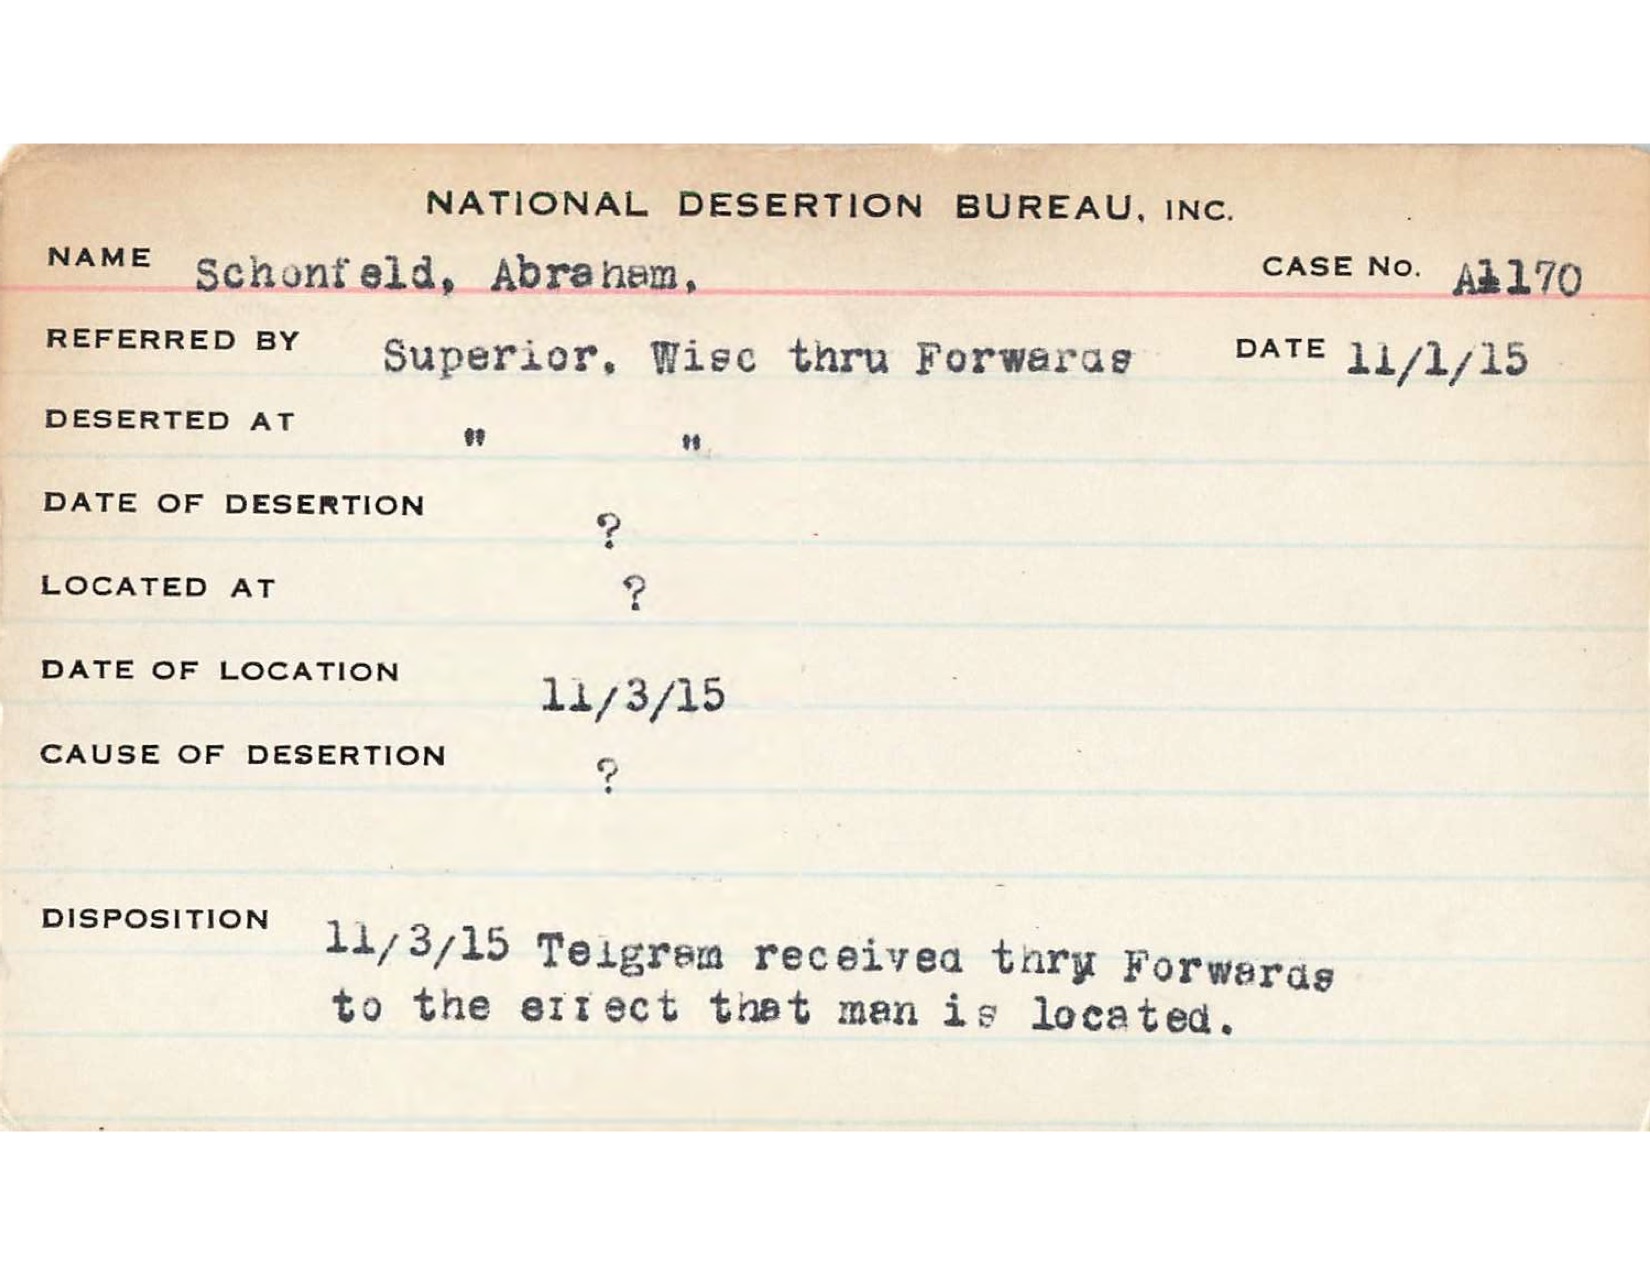 NATIONAL DESERTION BUREAU, INC.
NAME Schonfeld, Abraham, CASE No. A1170
REFERRED BY Superior. Wisc thru Forwards DATE 11/1/15
DESERTED AT " "
DATE OF DESERTION ?
LOCATED AT ?
DATE OF LOCATION 11/3/15
CAUSE OF DESERTION ?
DISPOSITION 11/3/15 Telgram received thry Forwards
to the effect that man is located.